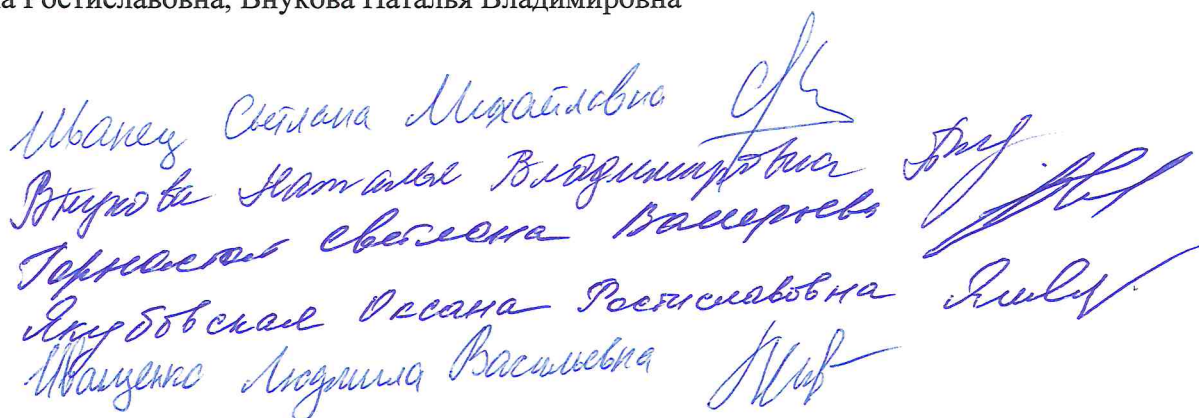 на Ростиславовна, Внукова Наталья Владимировна
Иванец Светлана Михайловна
Внукова Наталья Владимировна
Горностай Светлана Валерьевна
Якубовская Оксана Ростиславовна
Иващенко Людмила Васильевна